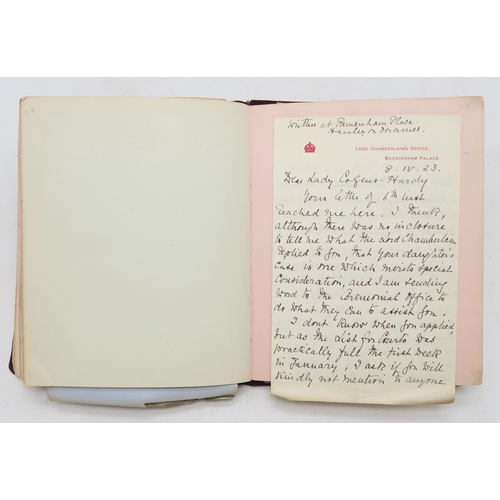 Written at Remenham Place
Henley on Thames.
LORD CHAMBERLAIN'S OFFICE,
BUCKINGHAM PALACE.
8 - IV - 23.
Dear Lady Cozens-Hardy
Your letter of 6th inst
reached me here. I think,
although there was no inclosure
to tell me what the Lord Chamberlain
replied to you, that your daughter's
case is one which merits special
consideration, and I am sending
word to the Ceremonial Office to
do what they can to assist you.
I don't know when you applied,
but as the list for Courts was
practically full the first week
in January, I ask if you will
kindly not mention to anyone